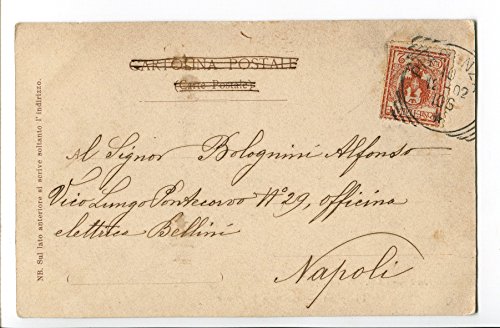 CARTOLINA POSTALE
(Carte Postale)
Al Signor Bolognini Alfonso
Vico Lungo Pontecorvo N° 29, officina
elettrica Bellini
Napoli
NB. Sul lato anteriore si scrive soltanto l'indirizzo.
02